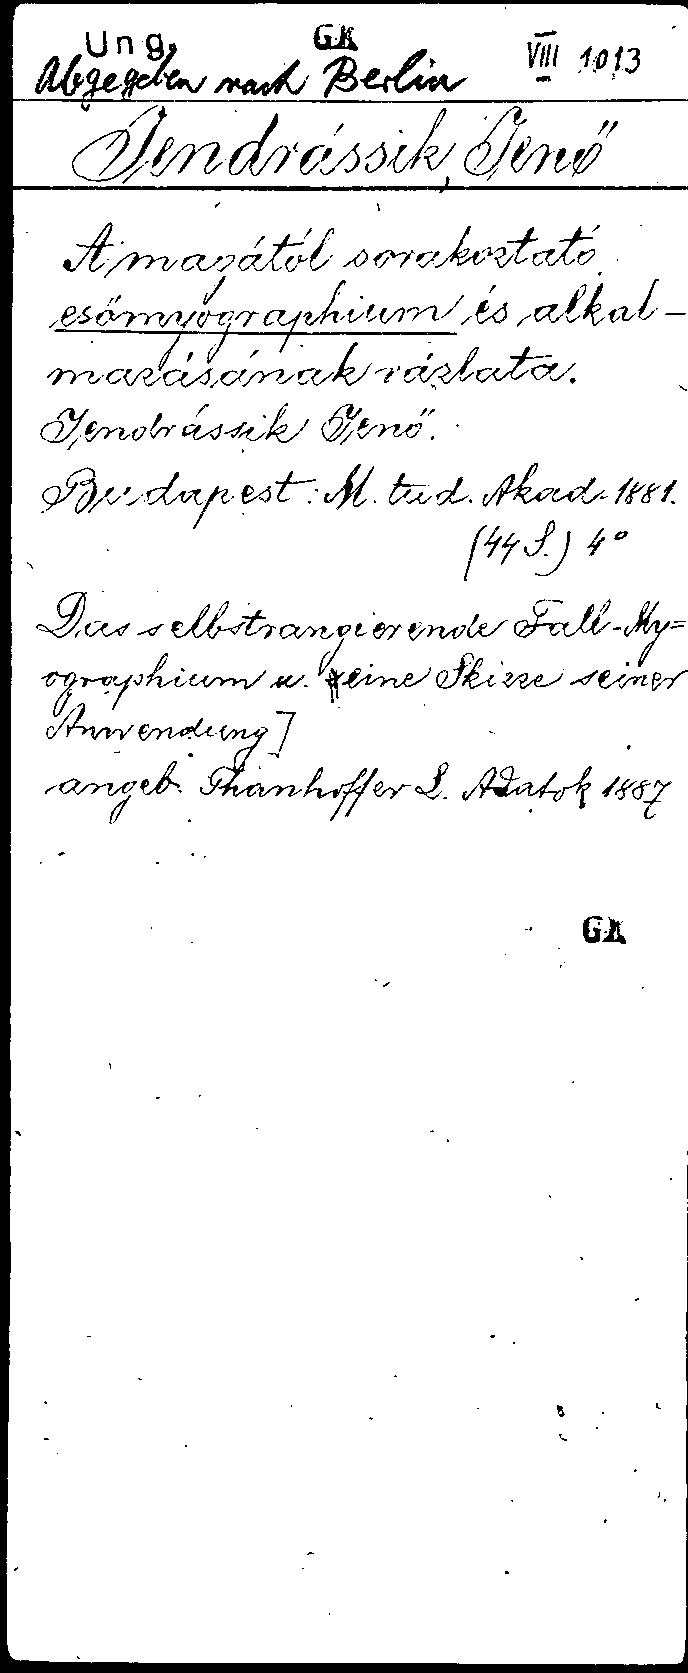 Ung. GK VIII 1013
Abgegeben nach Berlin
Jendrássik, Jenő
A magától sorakoztató
esőmyographium és alkal-
mazásának vázlata.
Jendrássik Jenő.
Budapest: M. tud. Akad. 1881.
(44 S.) 4°
Das selbstrangierende Fall-My=
ographium u. eine Skizze seiner
Anwendung]
angeb. Thanhoffer L. Adatok 1887
GK